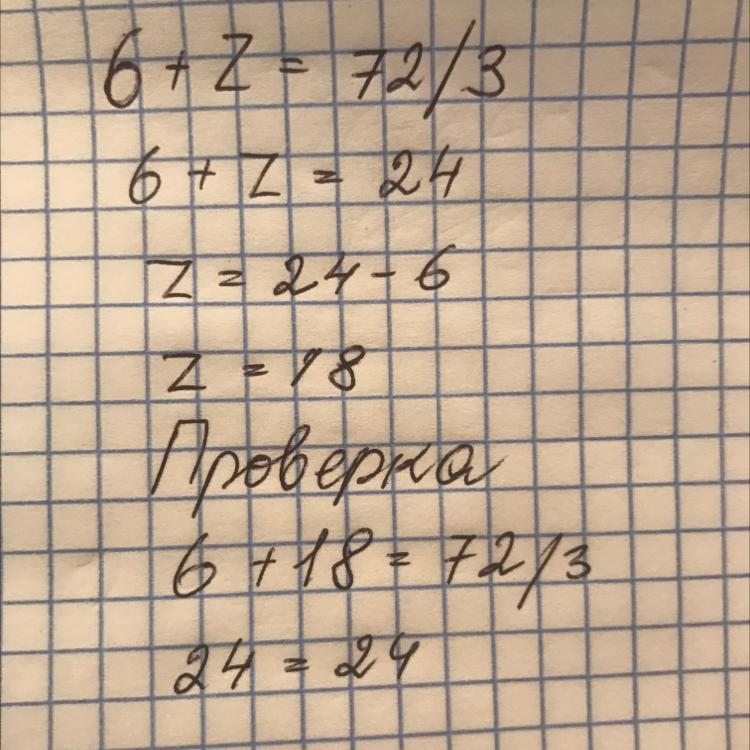 6 + Z = 72/3
6 + Z = 24
Z = 24 - 6
Z = 18
Проверка
6 + 18 = 72/3
24 = 24